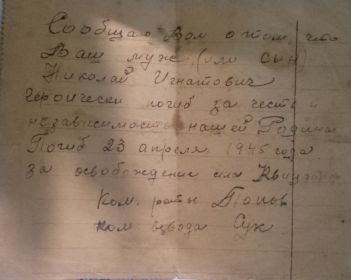 Сообщаю Вам о том, что
Ваш муж, (или сын)
Николай Игнатович
героически погиб за честь и
независимость нашей Родины
Погиб 23 апреля 1945 года
за освобождение
Ком. роты Попов
Ком взвода Сук